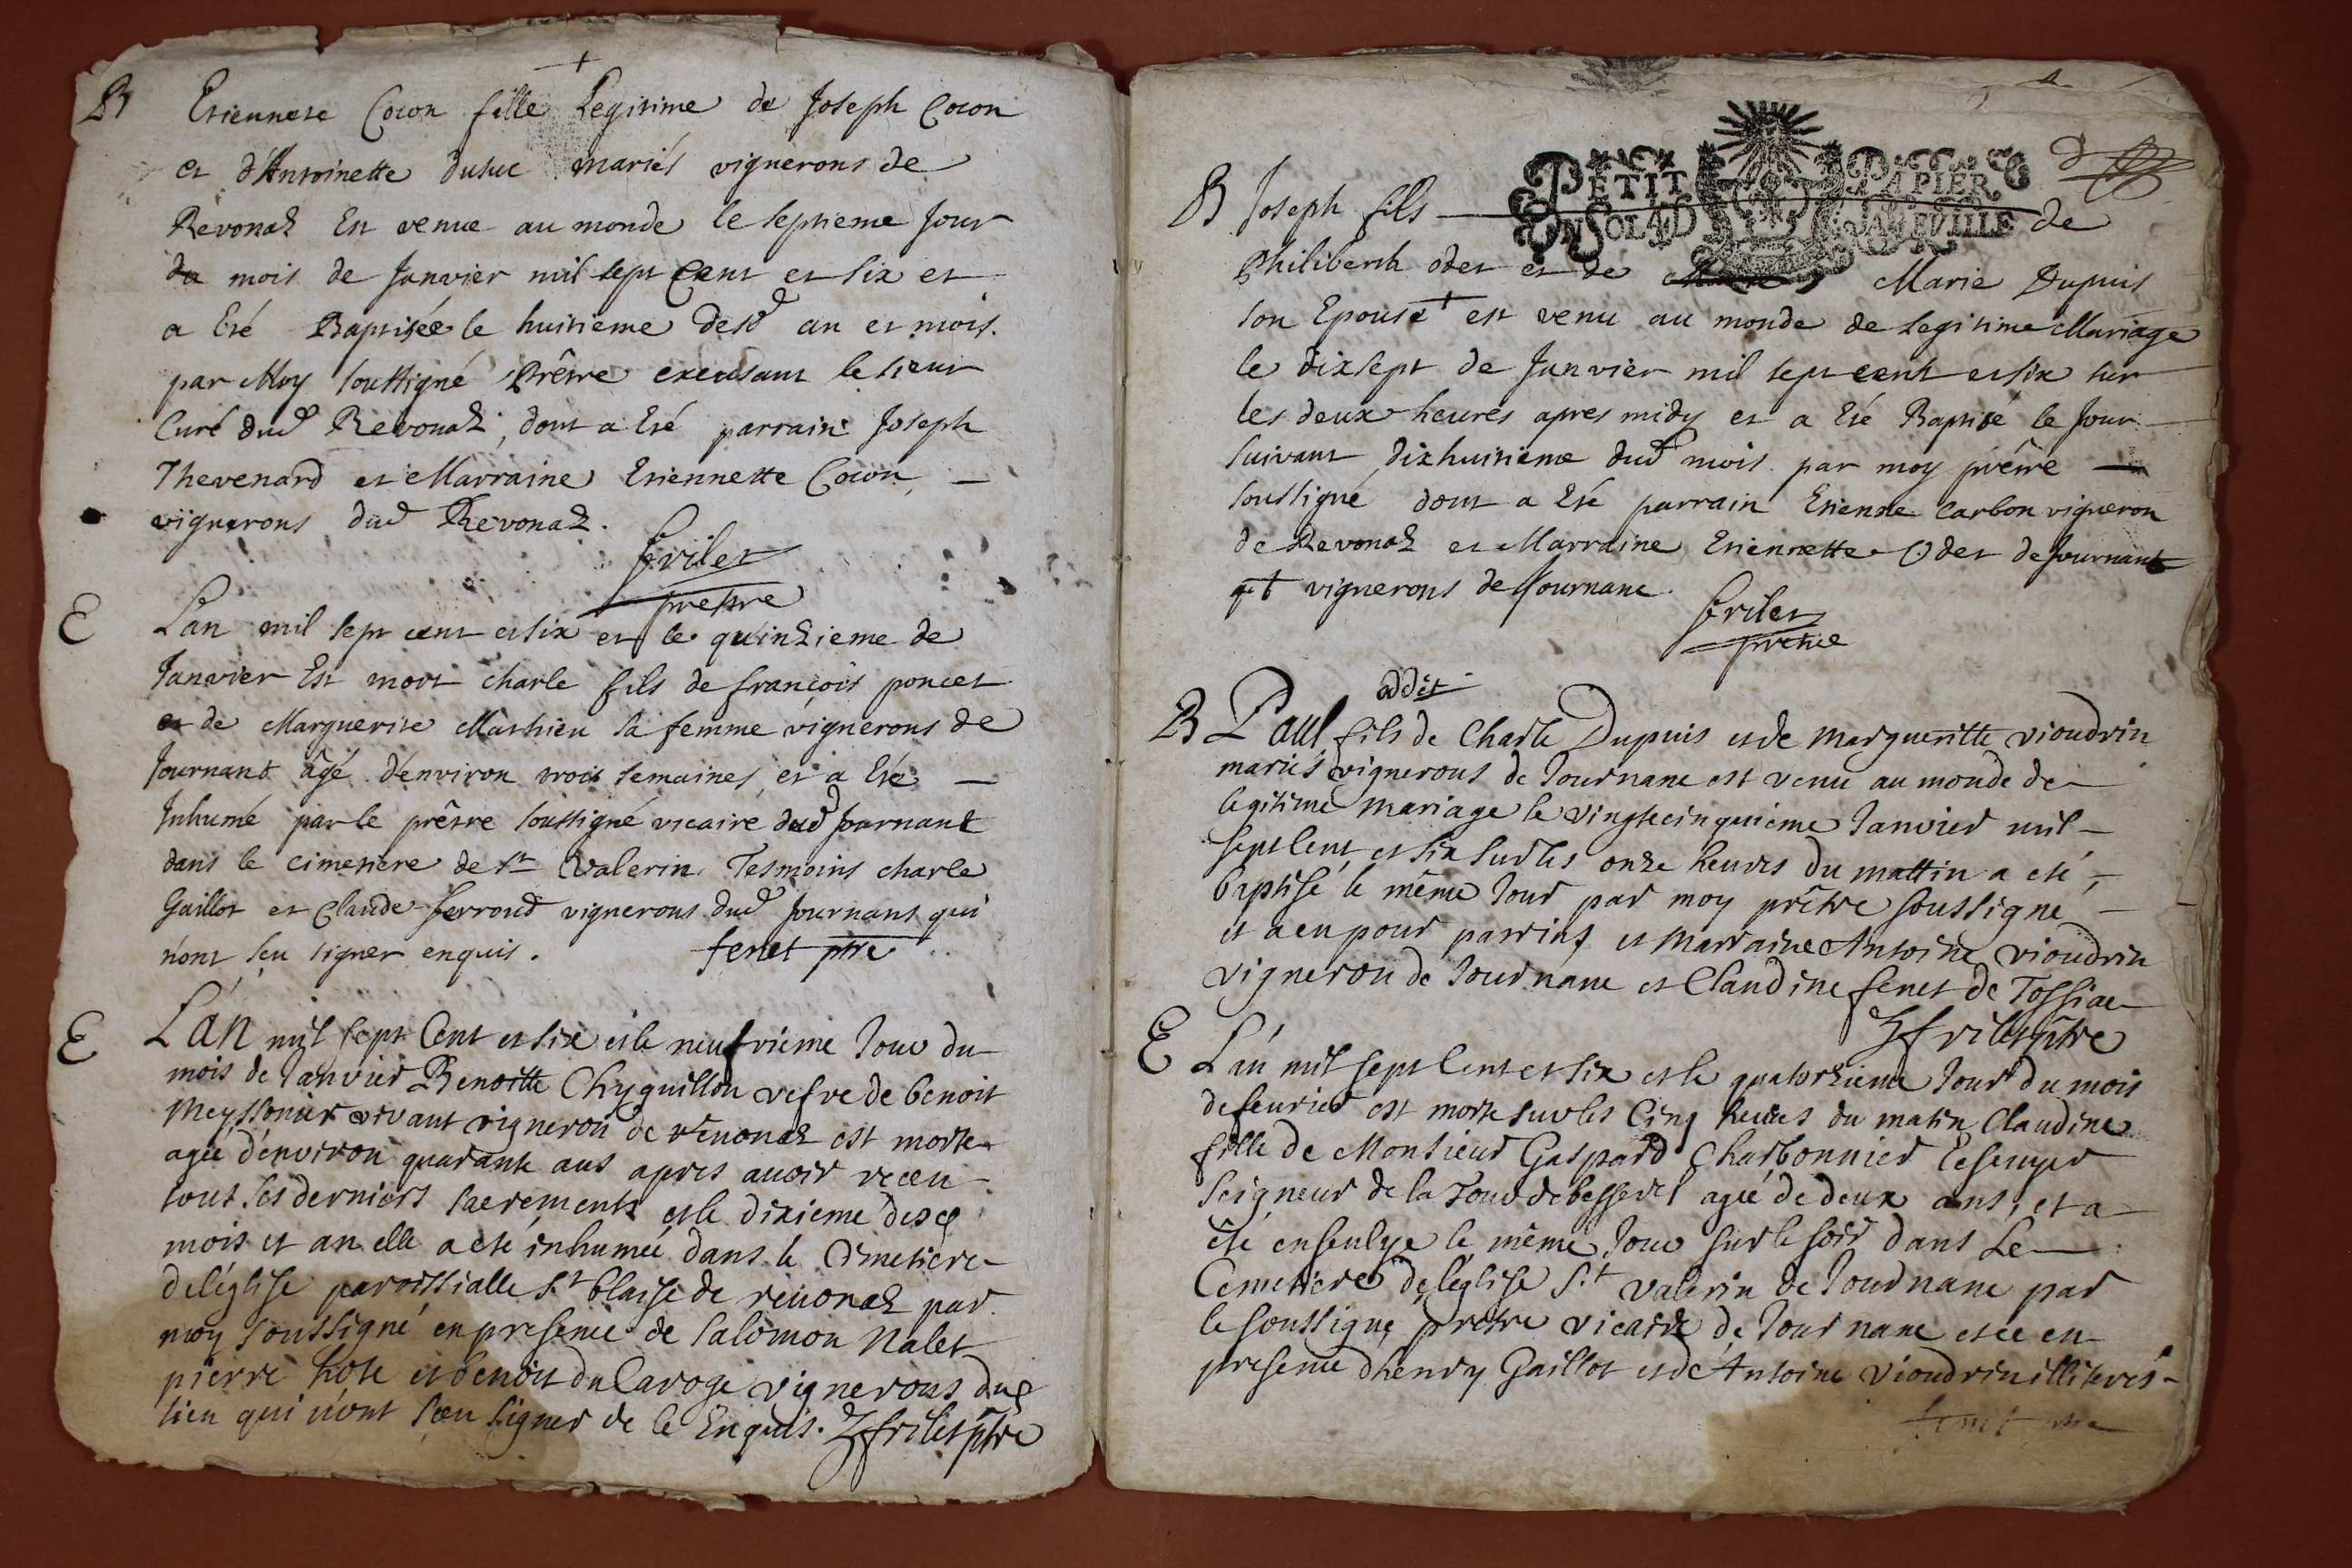 B Etiennete Cocon fille Legitime de Joseph Cocon
et d'Antoinette dutuc mariés vignerons de
Revonaz Est venue au monde le septieme Jour
du mois de Janvier mil sept Cent et six et
a Eté Baptisée le huitieme desd an et mois.
par Moy soussigné Prêtre excusant le sieur
Curé dud Revonaz, dont a Eté parrain Joseph
Thevenard et Marraine Etiennette Cocon,
vignerons dud Revonaz.
frilet
prestre
E Lan mil sept cent et six et le quinzieme de
Janvier Est mort charle fils de françois poncet
et de Marguerite Mathieu sa femme vignerons de
Journant âgé d'environ trois semaines, et a Eté
Inhumé par le prêtre soussigné vicaire dud Journant
dans le cimetiere de st Valerin. Tesmoins charle
Gaillot et Claude ferroud vignerons dud Journant qui
n'ont sçu signer enquis. fenet ptre
E L'an mil sept Cent et six et le neufvieme Jour du
mois de Janvier Benoitte Chyguillon vefve de benoit
Meyssonier vivant vigneron de revonaz est morte
agée d'environ quarante ans apres avoir receu
tout ses derniers sacrements et le dixieme desd
mois et an elle a eté inhumée dans le Cimetiere
de léglise paroissialle St blaise de revonaz par
moy soussigné en presence de Salomon Nalet
pierre hote et benoit du Caroge vignerons dud
lieu qui n'ont sceu signer de ce Enquis. Zfrilet ptre
PETIT PAPIER
UN SOL 4 D LA FEUILLE
B Joseph fils de
Philiberth odet et de Marie Dupuis
son Epouse + est venu au monde de Legitime Mariage
le dixsept de Janvier mil sept cent et six sur
les deux heures apres midy et a Eté Baptisé le Jour
suivant dixhuitieme dud mois par moy prêtre
soussigné dont a Eté parrain Etienne Carbon vigneron
de Revonaz et Marraine Etiennette Odet de Journant
+ vignerons de Journant.
frilet
prettre
addit
B Paul fils de Charle Dupuis et de margueritte vioudrin
mariés vignerons de Journant est venu au monde de
legitime mariage le vingtecinquieme Janvier mil
sept Cent et six sur les onze heures du mattin a eté
baptisé le même Jour par moy prêtre soussigné
et a eu pour parrint et marraine Antoine vioudrin
vigneron de Journant et Claudine fenet de Tossiat
Zfrilet ptre
E L'an mil sept Cent et six et le quatorzieme Jour du mois
de feurier est morte sur les Cinq heures du matin Claudine
fille de Monsieur Gaspard Charbonnier Ecsuyer
Seigneur de la Tour de besserel agée de deux ans, et a
été ensevlye le même Jour sur le soir dans Le
Cemetiere de léglise St valerin de Journant par
le soussigné pretre vicaire de Journant et ce en
presence d'henry Gaillot et de Antoine Vioudrin illiterés
fenet ptre